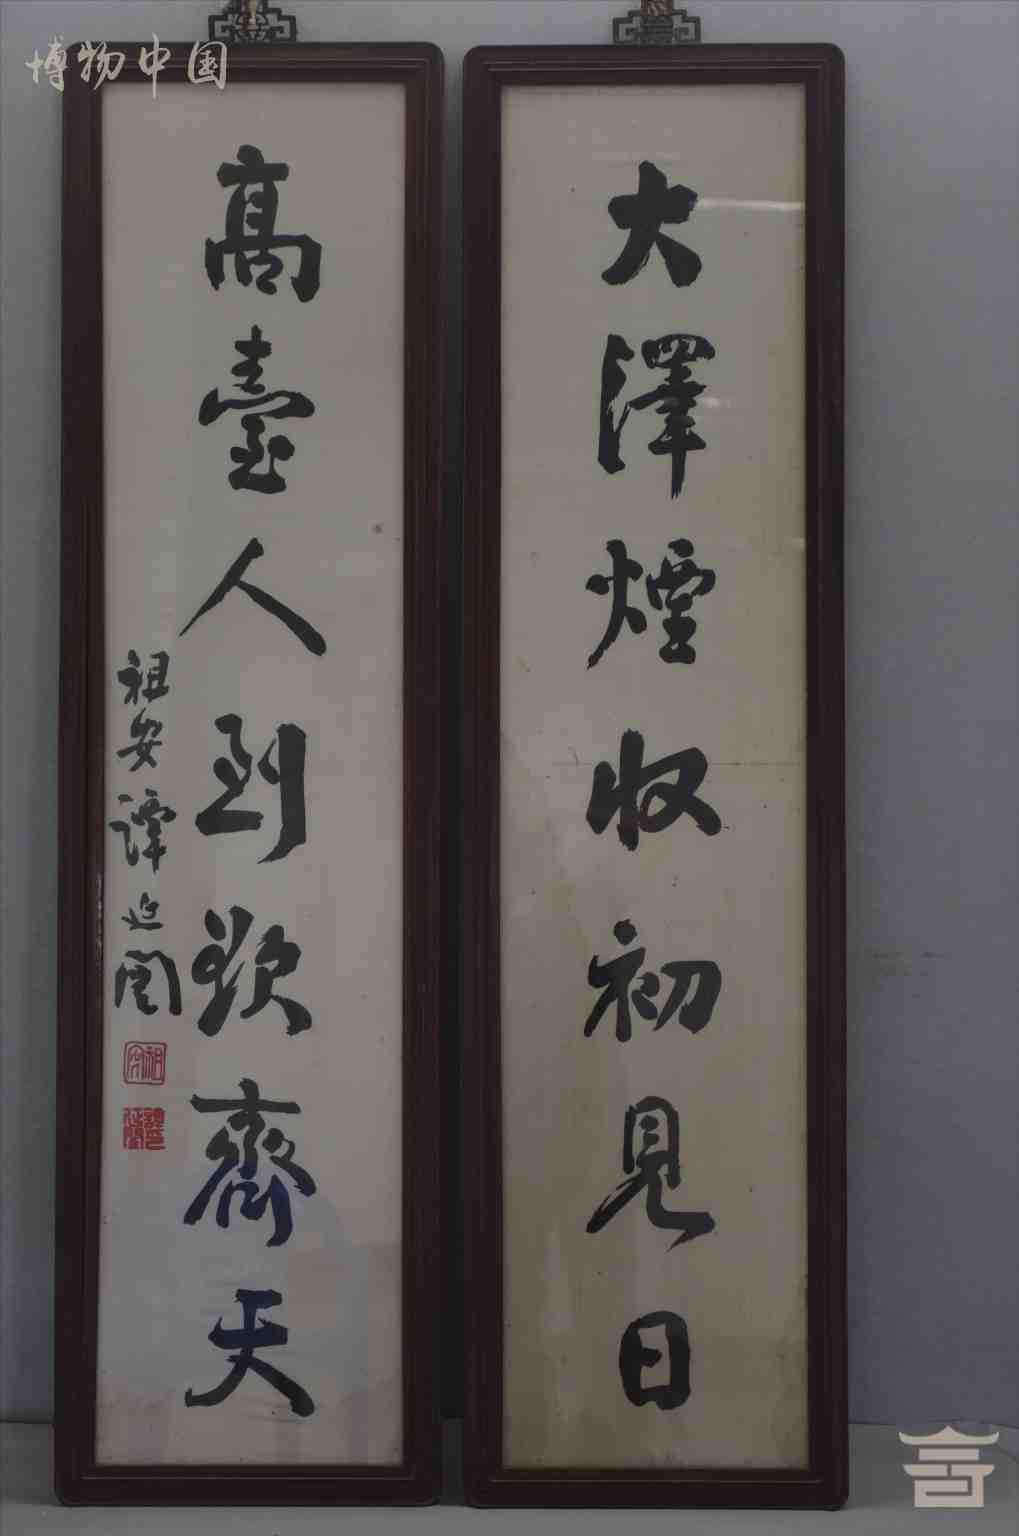 博物中国
大澤煙收初見日
高臺人到欲齊天
祖安譚延闓
祖安